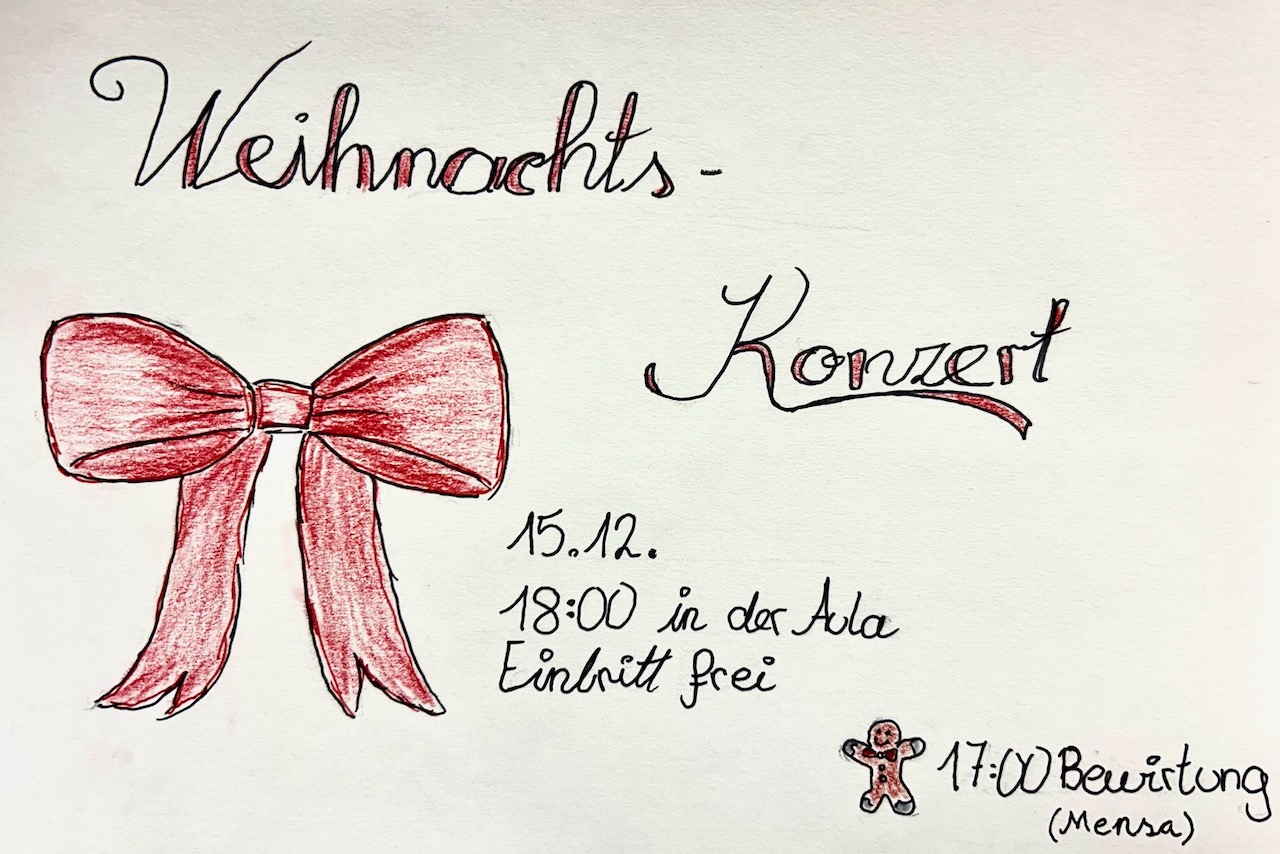 Weihnachts-
Konzert
15.12.
18:00 in der Aula
Eintritt frei
17:00 Bewirtung
(Mensa)